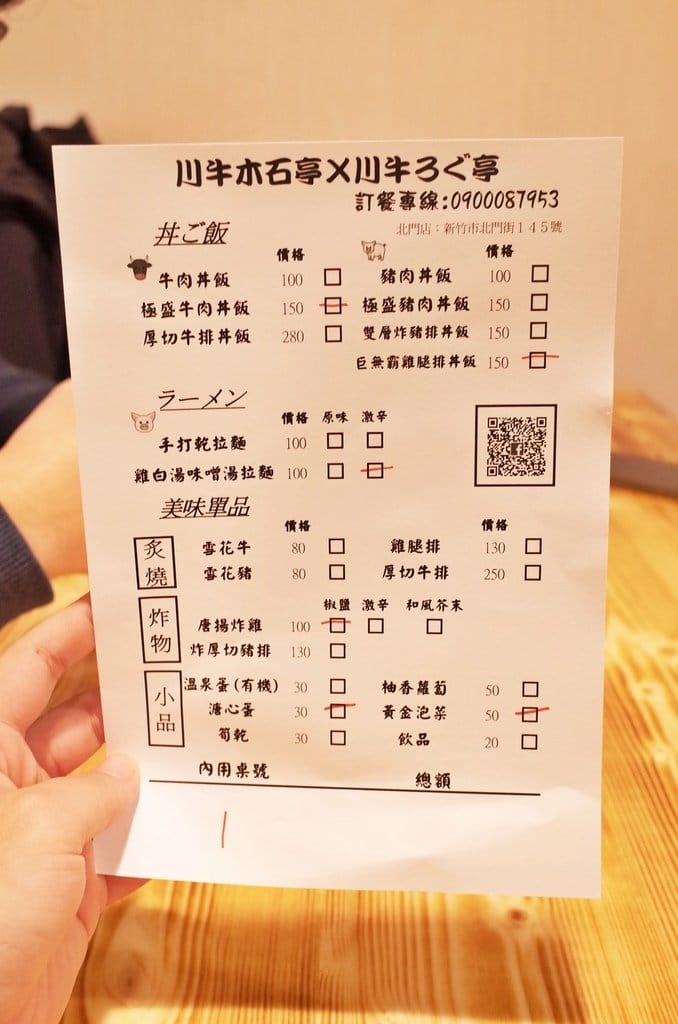 川牛木石亭X川牛ろぐ亭
訂餐專線:0900087953
北門店：新竹市北門街１４５號
丼ご飯
價格
牛肉丼飯 100
極盛牛肉丼飯 150
厚切牛排丼飯 280
價格
豬肉丼飯 100
極盛豬肉丼飯 150
雙層炸豬排丼飯 150
巨無霸雞腿排丼飯 150
ラーメン
價格 原味 激辛
手打乾拉麵 100
雞白湯味噌湯拉麵 100
美味單品
價格
炙燒
雪花牛 80
雪花豬 80
價格
雞腿排 130
厚切牛排 250
椒鹽 激辛 和風芥末
炸物
唐揚炸雞 100
炸厚切豬排 130
小品
溫泉蛋(有機) 30
溏心蛋 30
筍乾 30
柚香蘿蔔 50
黃金泡菜 50
飲品 20
內用桌號
總額
1